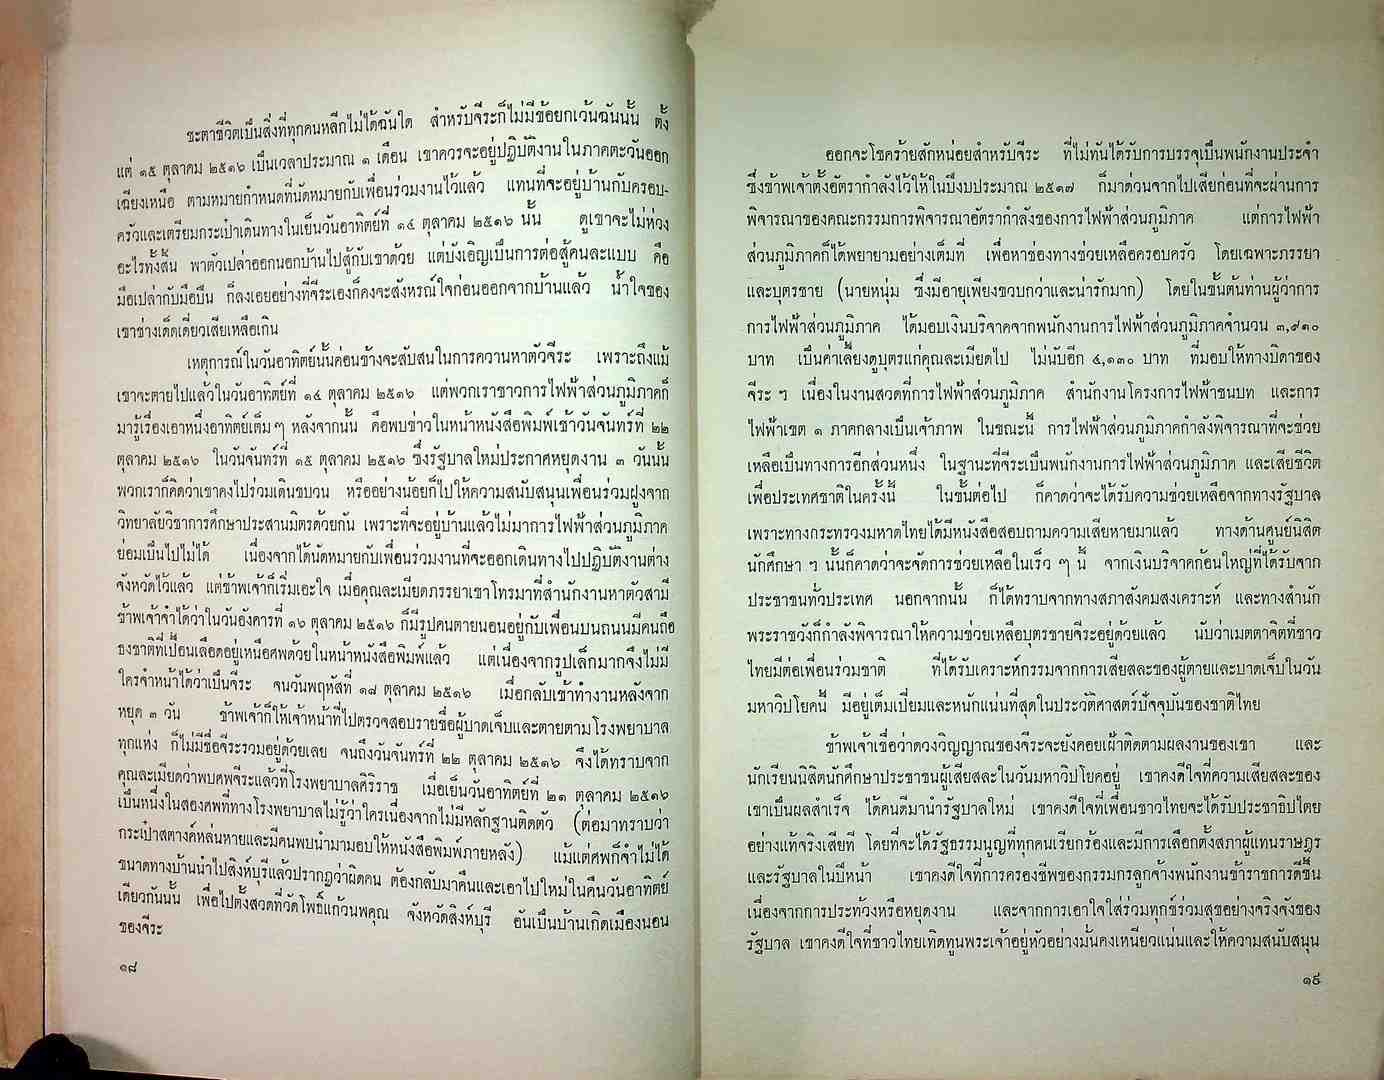 ชะตาชีวิตเป็นสิ่งที่ทุกคนหลีกไม่ได้ฉันใด สำหรับจีระก็ไม่มีข้อยกเว้นฉันนั้น ตั้ง
แต่ ๑๕ ตุลาคม ๒๕๑๖ เป็นเวลาประมาณ ๑ เดือน เขาควรจะอยู่ปฏิบัติงานในภาคตะวันออก
เฉียงเหนือ ตามหมายกำหนดที่นัดหมายกับเพื่อนร่วมงานไว้แล้ว แทนที่จะอยู่บ้านกับครอบ-
ครัวและเตรียมกระเป๋าเดินทางในเย็นวันอาทิตย์ที่ ๑๔ ตุลาคม ๒๕๑๖ นั้น ดูเขาจะไม่ห่วง
อะไรทั้งสิ้น พาตัวเปล่าออกนอกบ้านไปสู้กับเขาด้วย แต่บังเอิญเป็นการต่อสู้คนละแบบ คือ
มือเปล่ากับมือปืน ก็ลงเอยอย่างที่จีระเองก็คงจะสังหรณ์ใจก่อนออกจากบ้านแล้ว น้ำใจของ
เขาช่างเด็ดเดี่ยวเสียเหลือเกิน
เหตุการณ์ในวันอาทิตย์นั้นค่อนข้างจะสับสนในการควานหาตัวจีระ เพราะถึงแม้
เขาจะตายไปแล้วในวันอาทิตย์ที่ ๑๔ ตุลาคม ๒๕๑๖ แต่พวกเราชาวการไฟฟ้าส่วนภูมิภาคก็
มารู้เรื่องเอาหนึ่งอาทิตย์เต็มๆ หลังจากนั้น คือพบข่าวในหน้าหนังสือพิมพ์เช้าวันจันทร์ที่ ๒๒
ตุลาคม ๒๕๑๖ ในวันจันทร์ที่ ๑๕ ตุลาคม ๒๕๑๖ ซึ่งรัฐบาลใหม่ประกาศหยุดงาน ๓ วันนั้น
พวกเราก็คิดว่าเขาคงไปร่วมเดินขบวน หรืออย่างน้อยก็ไปให้ความสนับสนุนเพื่อนร่วมฝูงจาก
วิทยาลัยวิชาการศึกษาประสานมิตรด้วยกัน เพราะที่จะอยู่บ้านแล้วไม่มาการไฟฟ้าส่วนภูมิภาค
ย่อมเป็นไปไม่ได้ เนื่องจากได้นัดหมายกับเพื่อนร่วมงานที่จะออกเดินทางไปปฏิบัติงานต่าง
จังหวัดไว้แล้ว แต่ข้าพเจ้าก็เริ่มเอะใจ เมื่อคุณละเมียดภรรยาเขาโทรมาที่สำนักงานหาตัวสามี
ข้าพเจ้าจำได้ว่าในวันอังคารที่ ๑๖ ตุลาคม ๒๕๑๖ ก็มีรูปคนตายนอนอยู่กับเพื่อนบนถนนมีคนถือ
ธงชาติที่เปื้อนเลือดอยู่เหนือศพด้วยในหน้าหนังสือพิมพ์แล้ว แต่เนื่องจากรูปเล็กมากจึงไม่มี
ใครจำหน้าได้ว่าเป็นจีระ จนวันพฤหัสที่ ๑๘ ตุลาคม ๒๕๑๖ เมื่อกลับเข้าทำงานหลังจาก
หยุด ๓ วัน ข้าพเจ้าก็ให้เจ้าหน้าที่ไปตรวจสอบรายชื่อผู้บาดเจ็บและตายตามโรงพยาบาล
ทุกแห่ง ก็ไม่มีชื่อจีระรวมอยู่ด้วยเลย จนถึงวันจันทร์ที่ ๒๒ ตุลาคม ๒๕๑๖ จึงได้ทราบจาก
คุณละเมียดว่าพบศพจีระแล้วที่โรงพยาบาลศิริราช เมื่อเย็นวันอาทิตย์ที่ ๒๑ ตุลาคม ๒๕๑๖
เป็นหนึ่งในสองศพที่ทางโรงพยาบาลไม่รู้ว่าใครเนื่องจากไม่มีหลักฐานติดตัว (ต่อมาทราบว่า
กระเป๋าสตางค์หล่นหายและมีคนพบนำมามอบให้หนังสือพิมพ์ภายหลัง) แม้แต่ศพก็จำไม่ได้
ขนาดทางบ้านนำไปสิงห์บุรีแล้วปรากฏว่าผิดคน ต้องกลับมาคืนและเอาไปใหม่ในคืนวันอาทิตย์
เดียวกันนั้น เพื่อไปตั้งสวดที่วัดโพธิ์แก้วนพคุณ จังหวัดสิงห์บุรี อันเป็นบ้านเกิดเมืองนอน
ของจีระ
๑๘
ออกจะโชคร้ายสักหน่อยสำหรับจีระ ที่ไม่ทันได้รับการบรรจุเป็นพนักงานประจำ
ซึ่งข้าพเจ้าตั้งอัตรากำลังไว้ให้ในปีงบประมาณ ๒๕๑๗ ก็มาด่วนจากไปเสียก่อนที่จะผ่านการ
พิจารณาของคณะกรรมการพิจารณาอัตรากำลังของการไฟฟ้าส่วนภูมิภาค แต่การไฟฟ้า
ส่วนภูมิภาคก็ได้พยายามอย่างเต็มที่ เพื่อหาช่องทางช่วยเหลือครอบครัว โดยเฉพาะภรรยา
และบุตรชาย (นายหนุ่ม ซึ่งมีอายุเพียงขวบกว่าและน่ารักมาก) โดยในขั้นต้นท่านผู้ว่าการ
การไฟฟ้าส่วนภูมิภาค ได้มอบเงินบริจาคจากพนักงานการไฟฟ้าส่วนภูมิภาคจำนวน ๓,๙๑๐
บาท เป็นค่าเลี้ยงดูบุตรแก่คุณละเมียดไป ไม่นับอีก ๔,๑๓๐ บาท ที่มอบให้ทางบิดาของ
จีระ ฯ เนื่องในงานสวดที่การไฟฟ้าส่วนภูมิภาค สำนักงานโครงการไฟฟ้าชนบท และการ
ไฟฟ้าเขต ๑ ภาคกลางเป็นเจ้าภาพ ในขณะนี้ การไฟฟ้าส่วนภูมิภาคกำลังพิจารณาที่จะช่วย
เหลือเป็นทางการอีกส่วนหนึ่ง ในฐานะที่จีระเป็นพนักงานการไฟฟ้าส่วนภูมิภาค และเสียชีวิต
เพื่อประเทศชาติในครั้งนี้ ในขั้นต่อไป ก็คาดว่าจะได้รับความช่วยเหลือจากทางรัฐบาล
เพราะทางกระทรวงมหาดไทยได้มีหนังสือสอบถามความเสียหายมาแล้ว ทางด้านศูนย์นิสิต
นักศึกษา ฯ นั้นก็คาดว่าจะจัดการช่วยเหลือในเร็ว ๆ นี้ จากเงินบริจาคก้อนใหญ่ที่ได้รับจาก
ประชาชนทั่วประเทศ นอกจากนั้น ก็ได้ทราบจากทางสภาสังคมสงเคราะห์ และทางสำนัก
พระราชวังก็กำลังพิจารณาให้ความช่วยเหลือบุตรชายจีระอยู่ด้วยแล้ว นับว่าเมตตาจิตที่ชาว
ไทยมีต่อเพื่อนร่วมชาติ ที่ได้รับเคราะห์กรรมจากการเสียสละของผู้ตายและบาดเจ็บในวัน
มหาวิปโยคนี้ มีอยู่เต็มเปี่ยมและหนักแน่นที่สุดในประวัติศาสตร์ปัจจุบันของชาติไทย
ข้าพเจ้าเชื่อว่าดวงวิญญาณของจีระจะยังคอยเฝ้าติดตามผลงานของเขา และ
นักเรียนนิสิตนักศึกษาประชาชนผู้เสียสละในวันมหาวิปโยคอยู่ เขาคงดีใจที่ความเสียสละของ
เขาเป็นผลสำเร็จ ได้คนดีมานำรัฐบาลใหม่ เขาคงดีใจที่เพื่อนชาวไทยจะได้รับประชาธิปไตย
อย่างแท้จริงเสียที โดยที่จะได้รัฐธรรมนูญที่ทุกคนเรียกร้องและมีการเลือกตั้งสภาผู้แทนราษฎร
และรัฐบาลในปีหน้า เขาคงดีใจที่การครองชีพของกรรมกรลูกจ้างพนักงานข้าราชการดีขึ้น
เนื่องจากการประท้วงหรือหยุดงาน และจากการเอาใจใส่ร่วมทุกข์ร่วมสุขอย่างจริงจังของ
รัฐบาล เขาคงดีใจที่ชาวไทยเทิดทูนพระเจ้าอยู่หัวอย่างมั่นคงเหนียวแน่นและให้ความสนับสนุน
๑๙